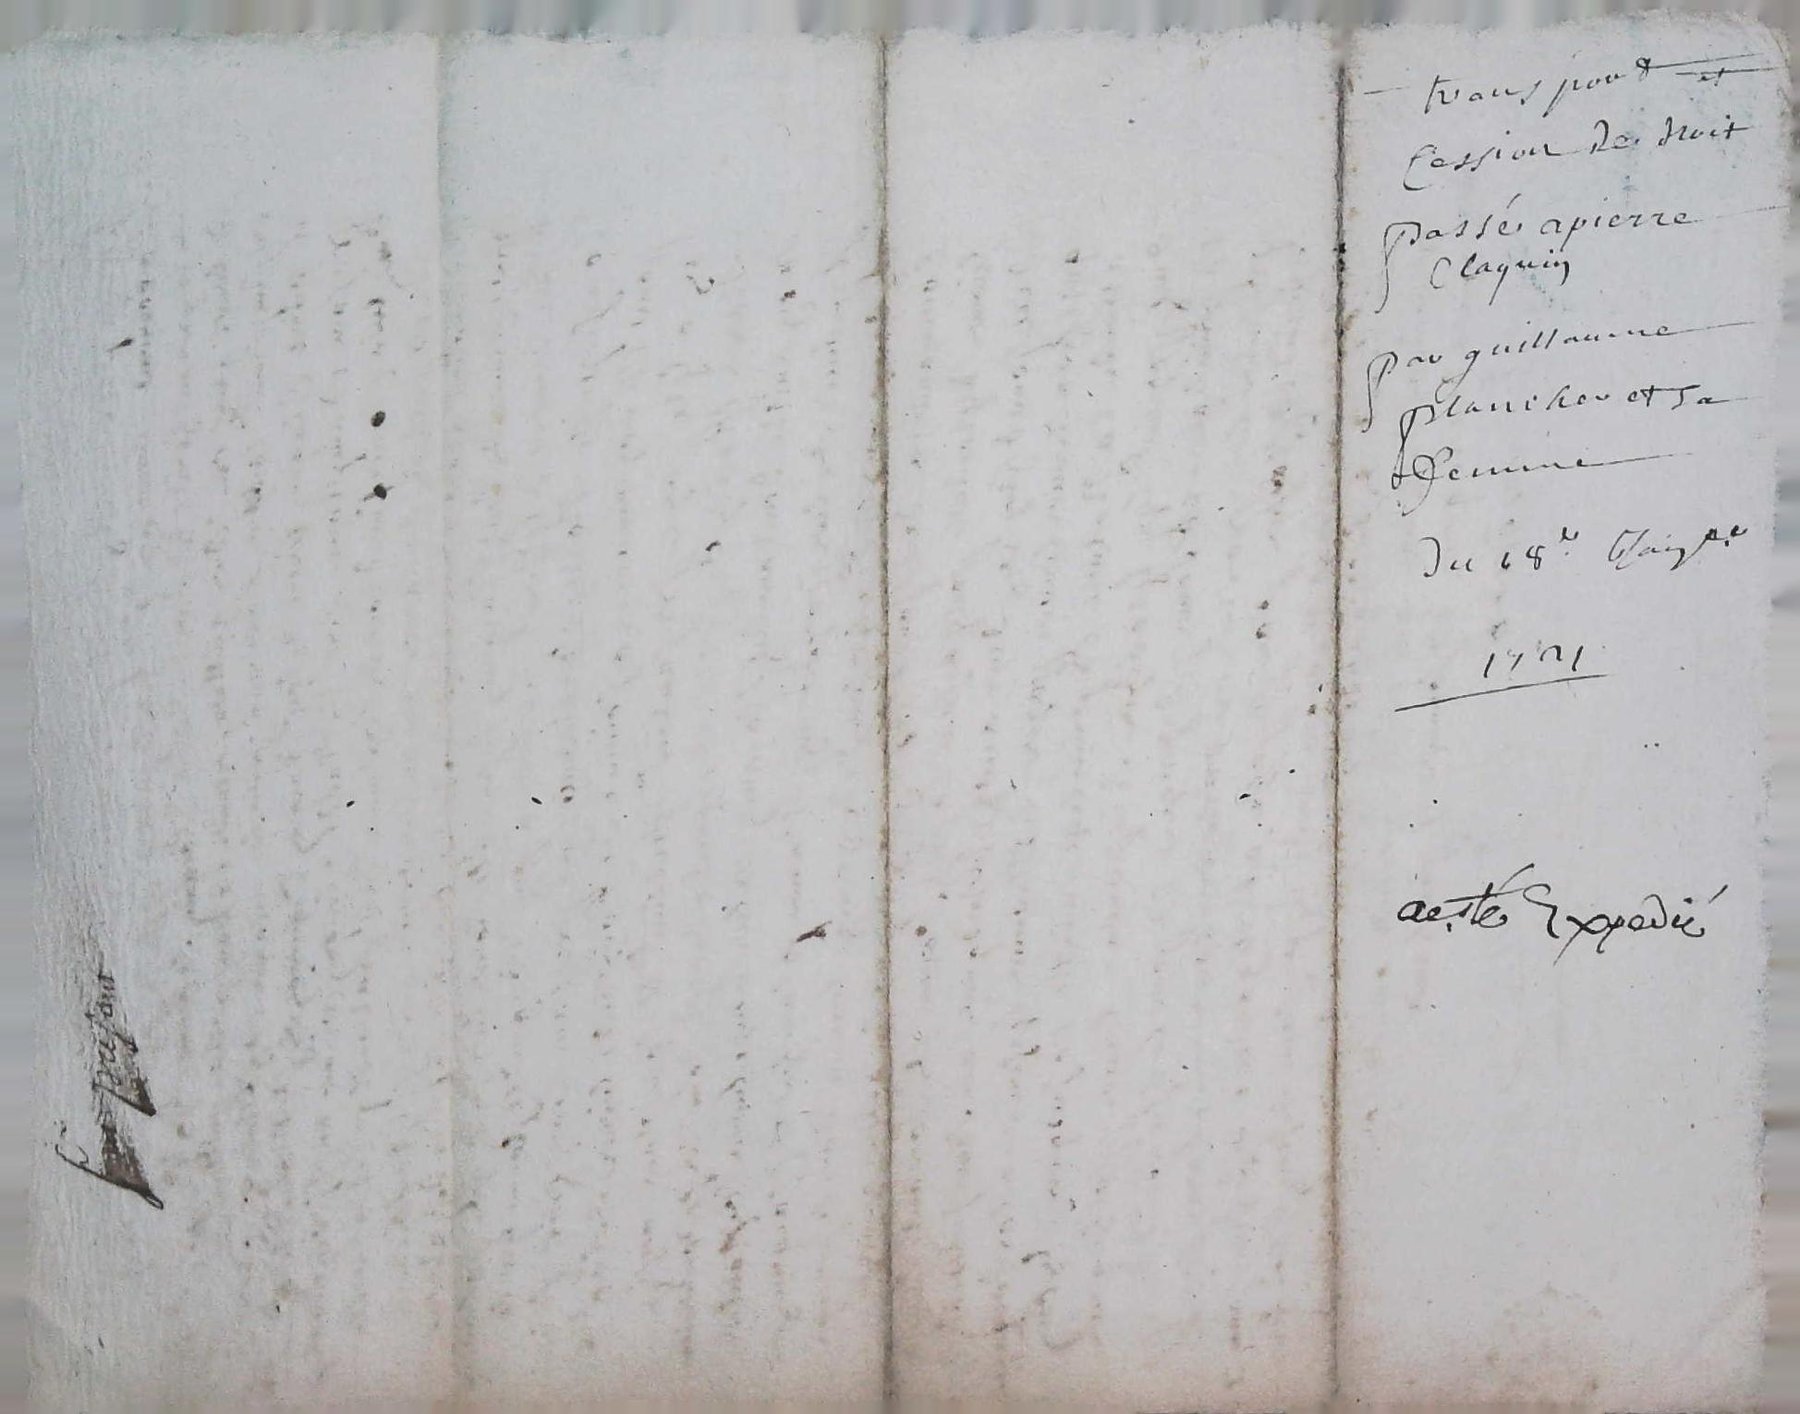 transport et
Cession de droit
passé apierre
Claquin
par guillaume
plancher et sa
femme
Du 18e
1721
aesté Expedié